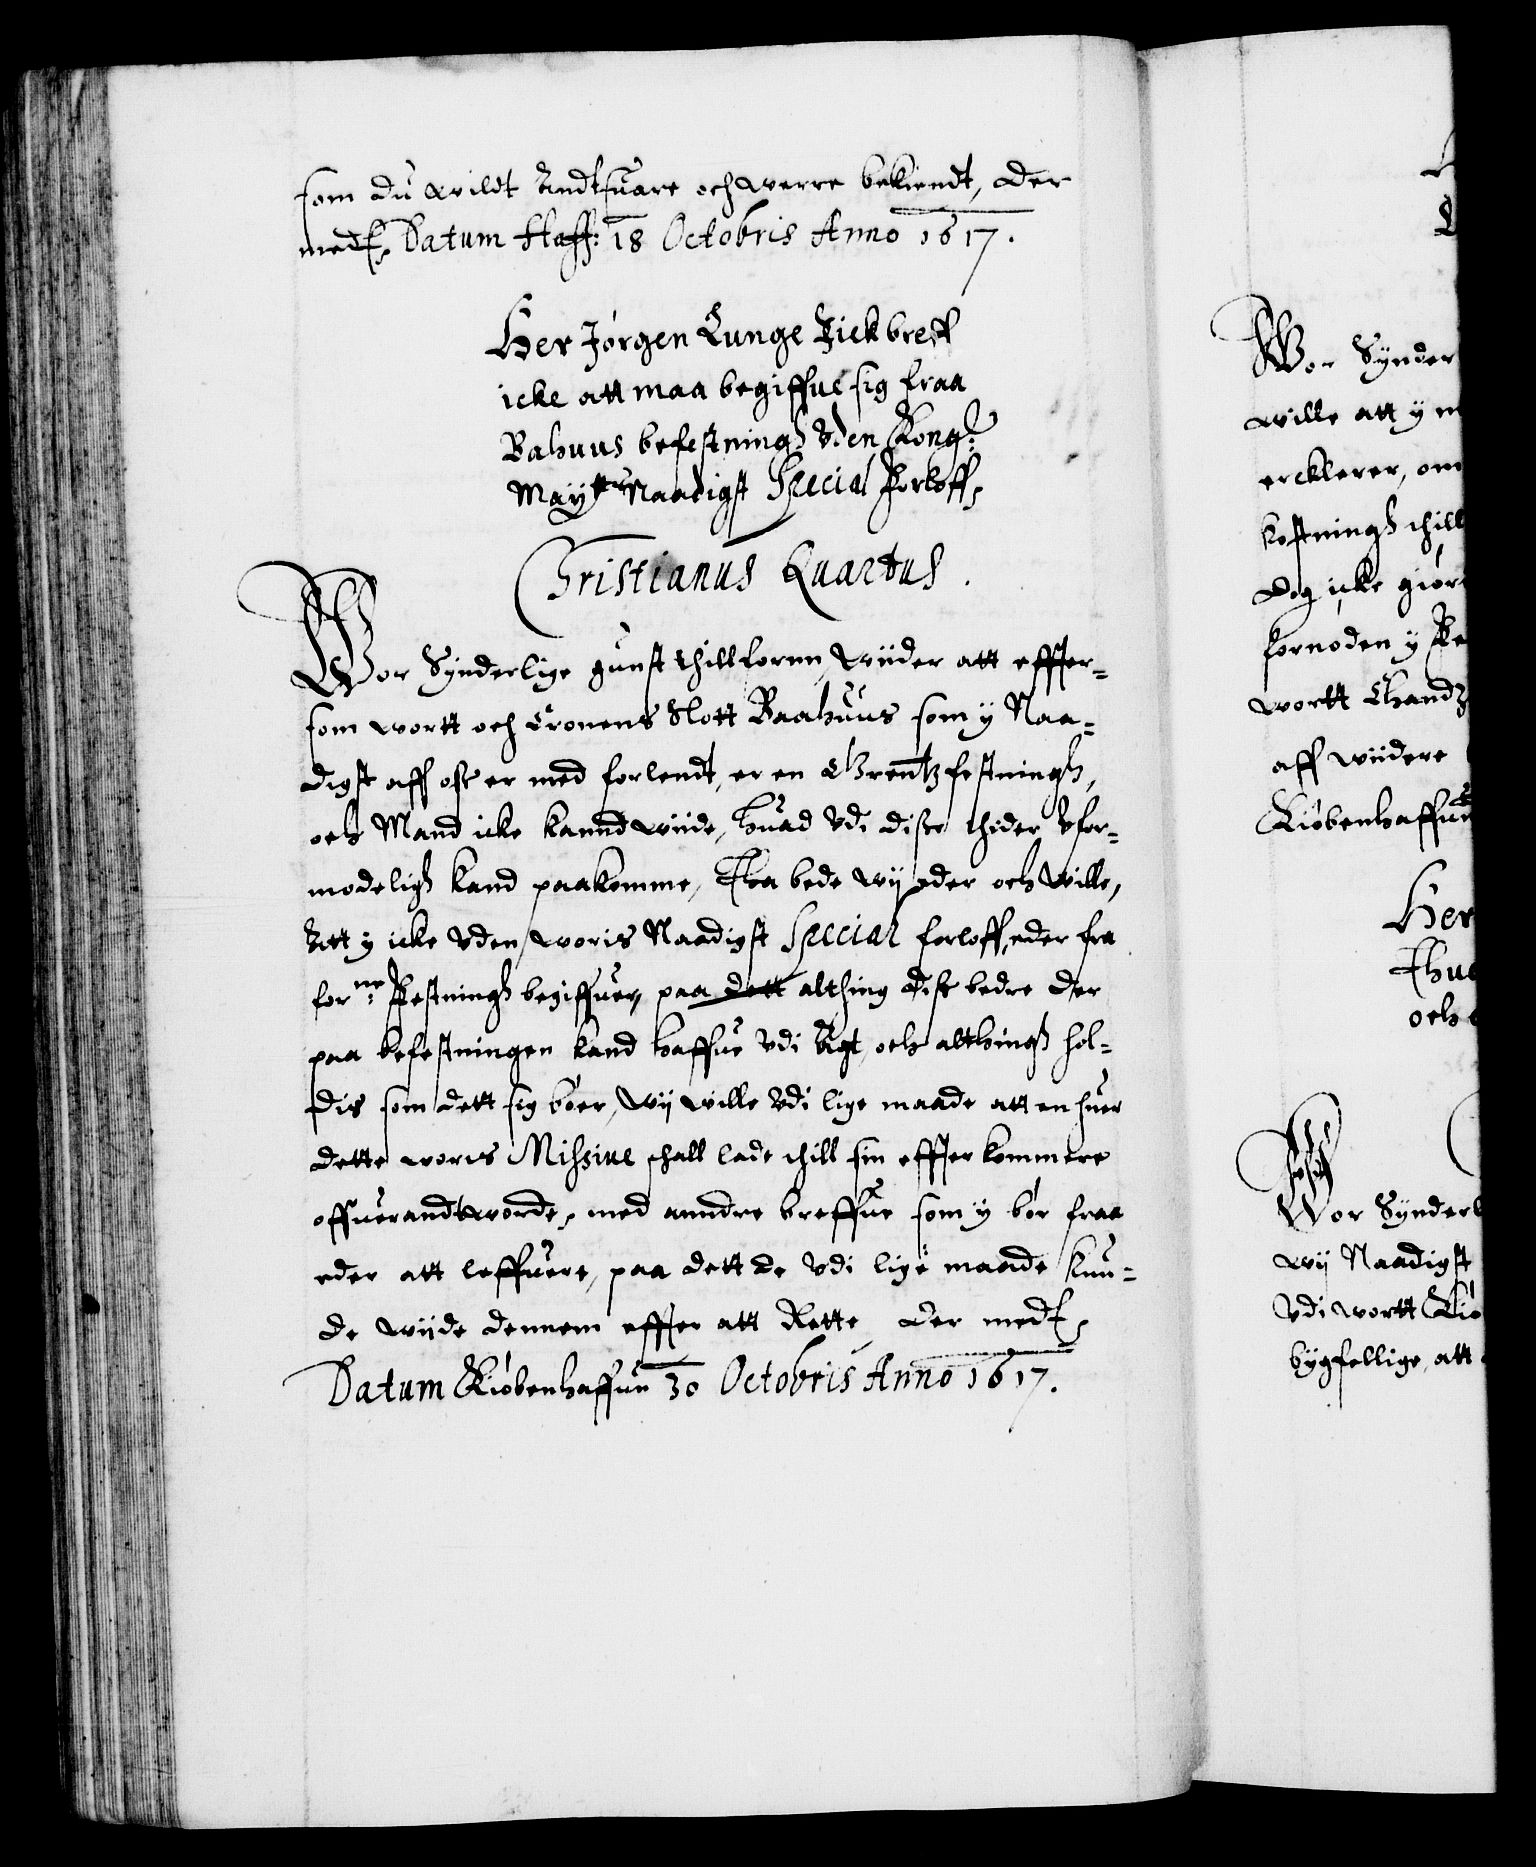 som du wildt Andtsuare och werre bekiendt, der
med. Datum Haff: 18 Octobris Anno 1617.
Her Jörgen Lunge Fick breff
icke att maa begiffue sig fraa
Bahuus befestningh Vden Kong:
May:tts Naadigst Special Forloff.
Christianus Quartus.
Wor Synderlige gunst thillforn, Wiider att effter-
som wortt och Cronens Slott Baahuus som y Naa-
digst aff oss er med forlendt, er en Grentzfestningh,
och Mand icke kannd wiide, huad Vdi disse thider Vfor-
modeligh kand paakomme, Tha bede wij eder och wille,
Att y icke Vden woris Naadigst Special forloff, eder fra
for:ne Festningh begiffuer, paa dett althing dist bedre der
paa befestningen kand haffue Vdi Agt, och althingh hol-
dis som dett sig bóer, Wij wille Vdi lige maade att en huer
dette woris Missive schall lade thill sin effterkommere
offuerandtworde, med anndre breffue som y bór fraa
eder att leffuere, paa dett de Vdi lige maade kun-
de wiide dennem effter att Rette, Der med.
Datum Kiöbenhaffun 30 Octobris Anno 1617.
Wor Synder
wille att y
erklerer, om
kostningh thill
dog icke giör
fornöden y
wortt
aff wiidere
Kiöbenhaffue
Her
och
Wor Synderl
wij Naadigst
Vdi wortt Kiö
bygfellige, att